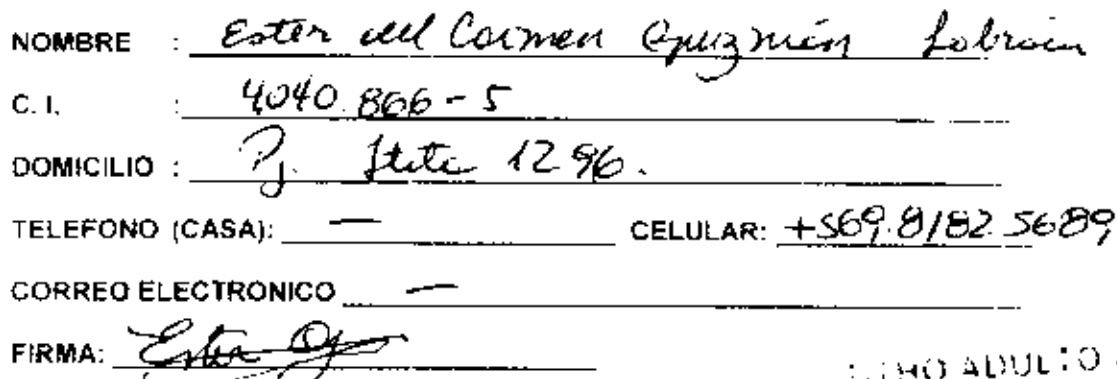 NOMBRE : Ester del Carmen Guzmán
C. I. : 4040.866-5
DOMICILIO : Pj. Itata 1296.
TELEFONO (CASA): — CELULAR: +569.8182.5689
CORREO ELECTRONICO —
FIRMA: Ester
ADULTO